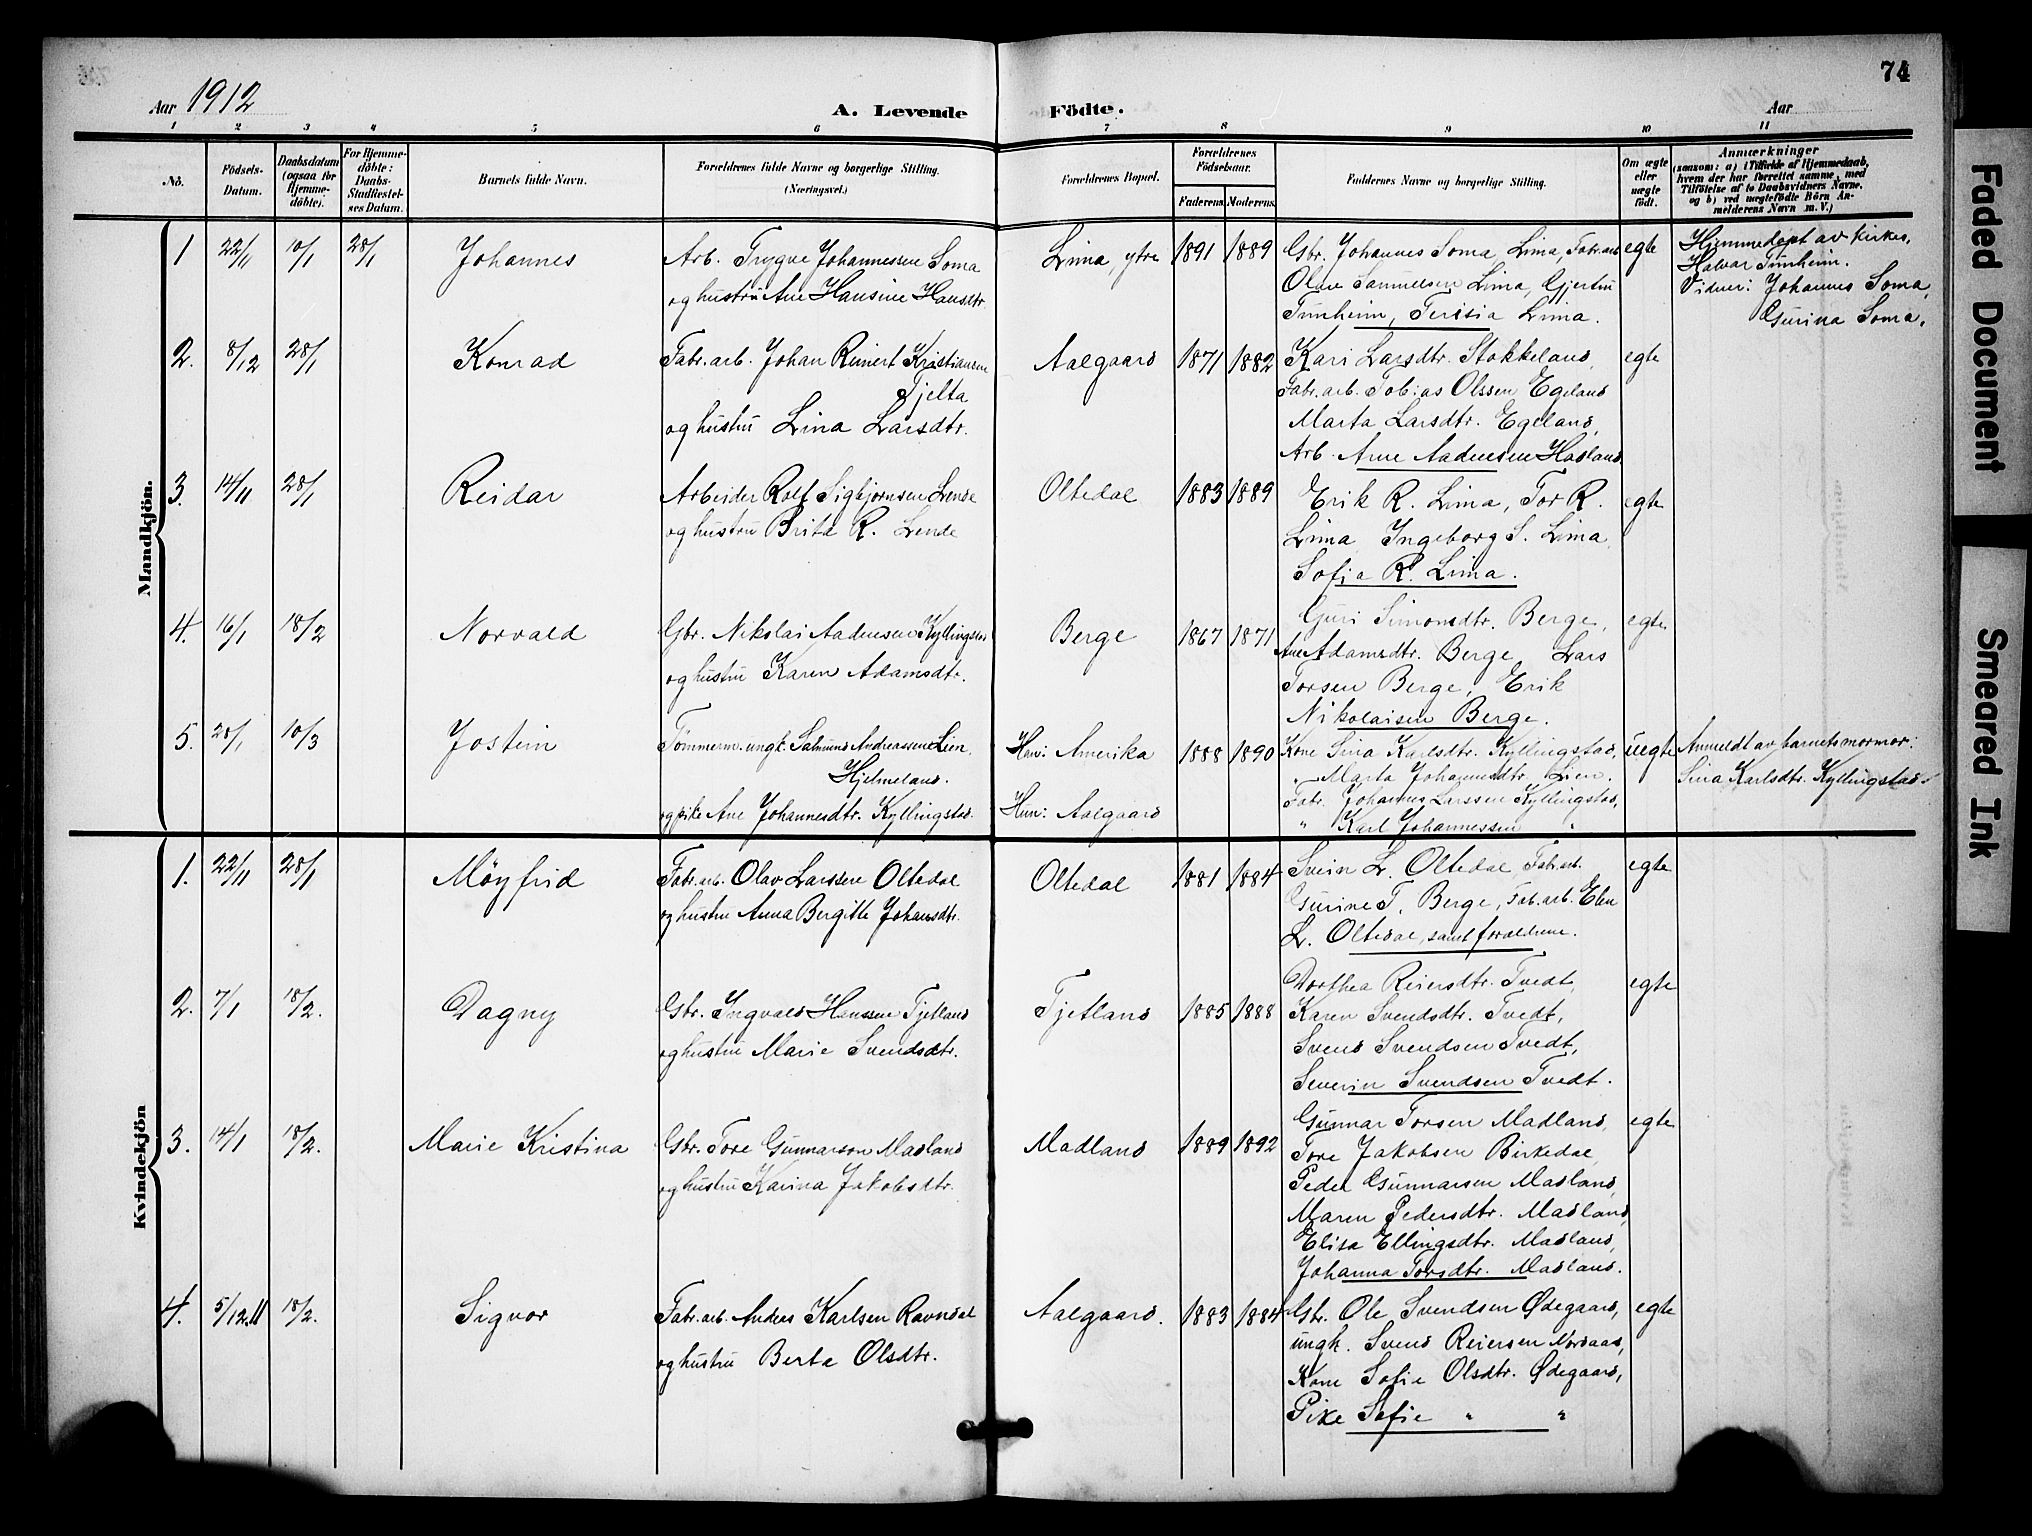 74
Aar 1912 A. Levende Födte. Aar
1 2 3 4 5 6 7 8 9 10 11
No.
Födsels-Datum.
Daabsdatum (ogsaa for Hjemme-döbte).
For Hjemme-döbte: Daabs-Stadfæstel-ses Datum.
Barnets fulde Navn.
Forældrenes fulde Navne og borgerlige Stilling.
(Næringsvei.)
Forældrenes Bopæl.
Forældrenes Födselsaar.
Faderens Moderens
Faddernes Navne og borgerlige Stilling.
Om ægte eller uægte födt.
Anmærkninger
(saasom: a) i Tilfælde af Hjemmedaab, hvem der har forrettet samme, med Tilföielse af to Daabsvidners Navne, og b) ved uægtefödte Börn An-melderens Navn m. V.)
Mandkjön.
1 22/11 10/1 28/1 Johannes
Arb. Trygve Johannessen Soma
og hustru Ane Hansine Hansdtr.
Lima, ytre 1891 1889
Gbr. Johannes Soma, Lima, Fabr.arb
Olav Samuelsen Lima, Gjertru
Tunheim, Terisia Lima.
egte
Hjemmedøpt av kirkes.
Halvar Tunheim.
Vidner: Johannes Soma,
Gurina Soma.
2. 8/12 28/1 Konrad
Fabr.arb. Johan Reinert Kristiansen
Tjelta
og hustru Lina Larsdtr.
Aalgaard 1871 1882
Kari Larsdtr. Stokkeland,
Fabr.arb. Tobias Olssen Egeland
Marta Larsdtr. Egeland,
Arb. Arne Aadnesen Hadland
egte
3. 14/11 28/1 Reidar
Arbeider Rolf Sigbjørnsen Lende
og hustru Brita R. Lende
Oltedal 1883 1889
Erik R. Lima, Tor R.
Lima, Ingeborg S. Lima,
Sofia R. Lima.
egte
4. 16/1 18/2 Norvald
Gbr. Nikolai Aadnesen Kyllingstad
og hustru Karen Adamsdtr.
Berge 1867 1871
Guri Simonsdtr. Berge,
Ane Adamsdtr. Berge, Lars
Torsen Berge, Erik
Nikolaisen Berge.
egte
5. 20/1 10/3 Jostein
Tømmerm. ungk. Salmund Andreassen Lien,
Hjelmeland.
og pike Ane Johannesdtr. Kyllingstad.
Han: Amerika
Hun: Aalgaard
1888 1890
Kone Sina Karlsdtr. Kyllingstad,
" Marta Johannesdtr. Lien.
Fabr. Johannes Larssen Kyllingstad,
" Karl Johannessen "
uegte
Anmeldt av barnets mormor:
Sina Karlsdtr. Kyllingstad
Kvindekjön
1. 22/11 28/1 Møyfrid
Fabr.arb. Olav Larssen Oltedal
og hustru Anna Bergitte Johansdtr.
Oltedal 1881 1884
Svein L. Oltedal, Fabr.arb.
Gurine T. Berge, Fab.arb. Elen
L. Oltedal, samt forældrene.
egte
2. 7/1 18/2. Dagny
Gbr. Ingvald Hanssen Tjetland
og hustru Marie Svendsdtr.
Tjetland 1885 1888
Dorthea Reiersdtr. Tvedt,
Karen Svendsdtr. Tvedt,
Svend Svendsen Tvedt,
Severin Svendsen Tvedt.
egte
3. 14/1 18/2. Marie Kristina
Gbr. Tore Gunnarson Madland
og hustru Karina Jakobsdtr.
Madland 1889 1892
Gunnar Torsen Madland,
Tore Jakobsen Birkedal,
Peder Gunnarsen Madland,
Maren Pedersdtr. Madland,
Elisa Ellingsdtr. Madland,
Johanna Torsdtr. Madland.
egte
4. 5/12.11 18/2. Sigvor
Fabr.arb. Anders Karlsen Ravndal
og hustru Berta Olsdtr.
Aalgaard. 1883 1884
Gbr. Ole Svendsen Ødegaard,
ungk. Svend Reiersen Nordaas,
Kone Sofie Olsdtr. Ødegaard,
Pike Sofie " "
egte
Faded Document
Smeared Ink